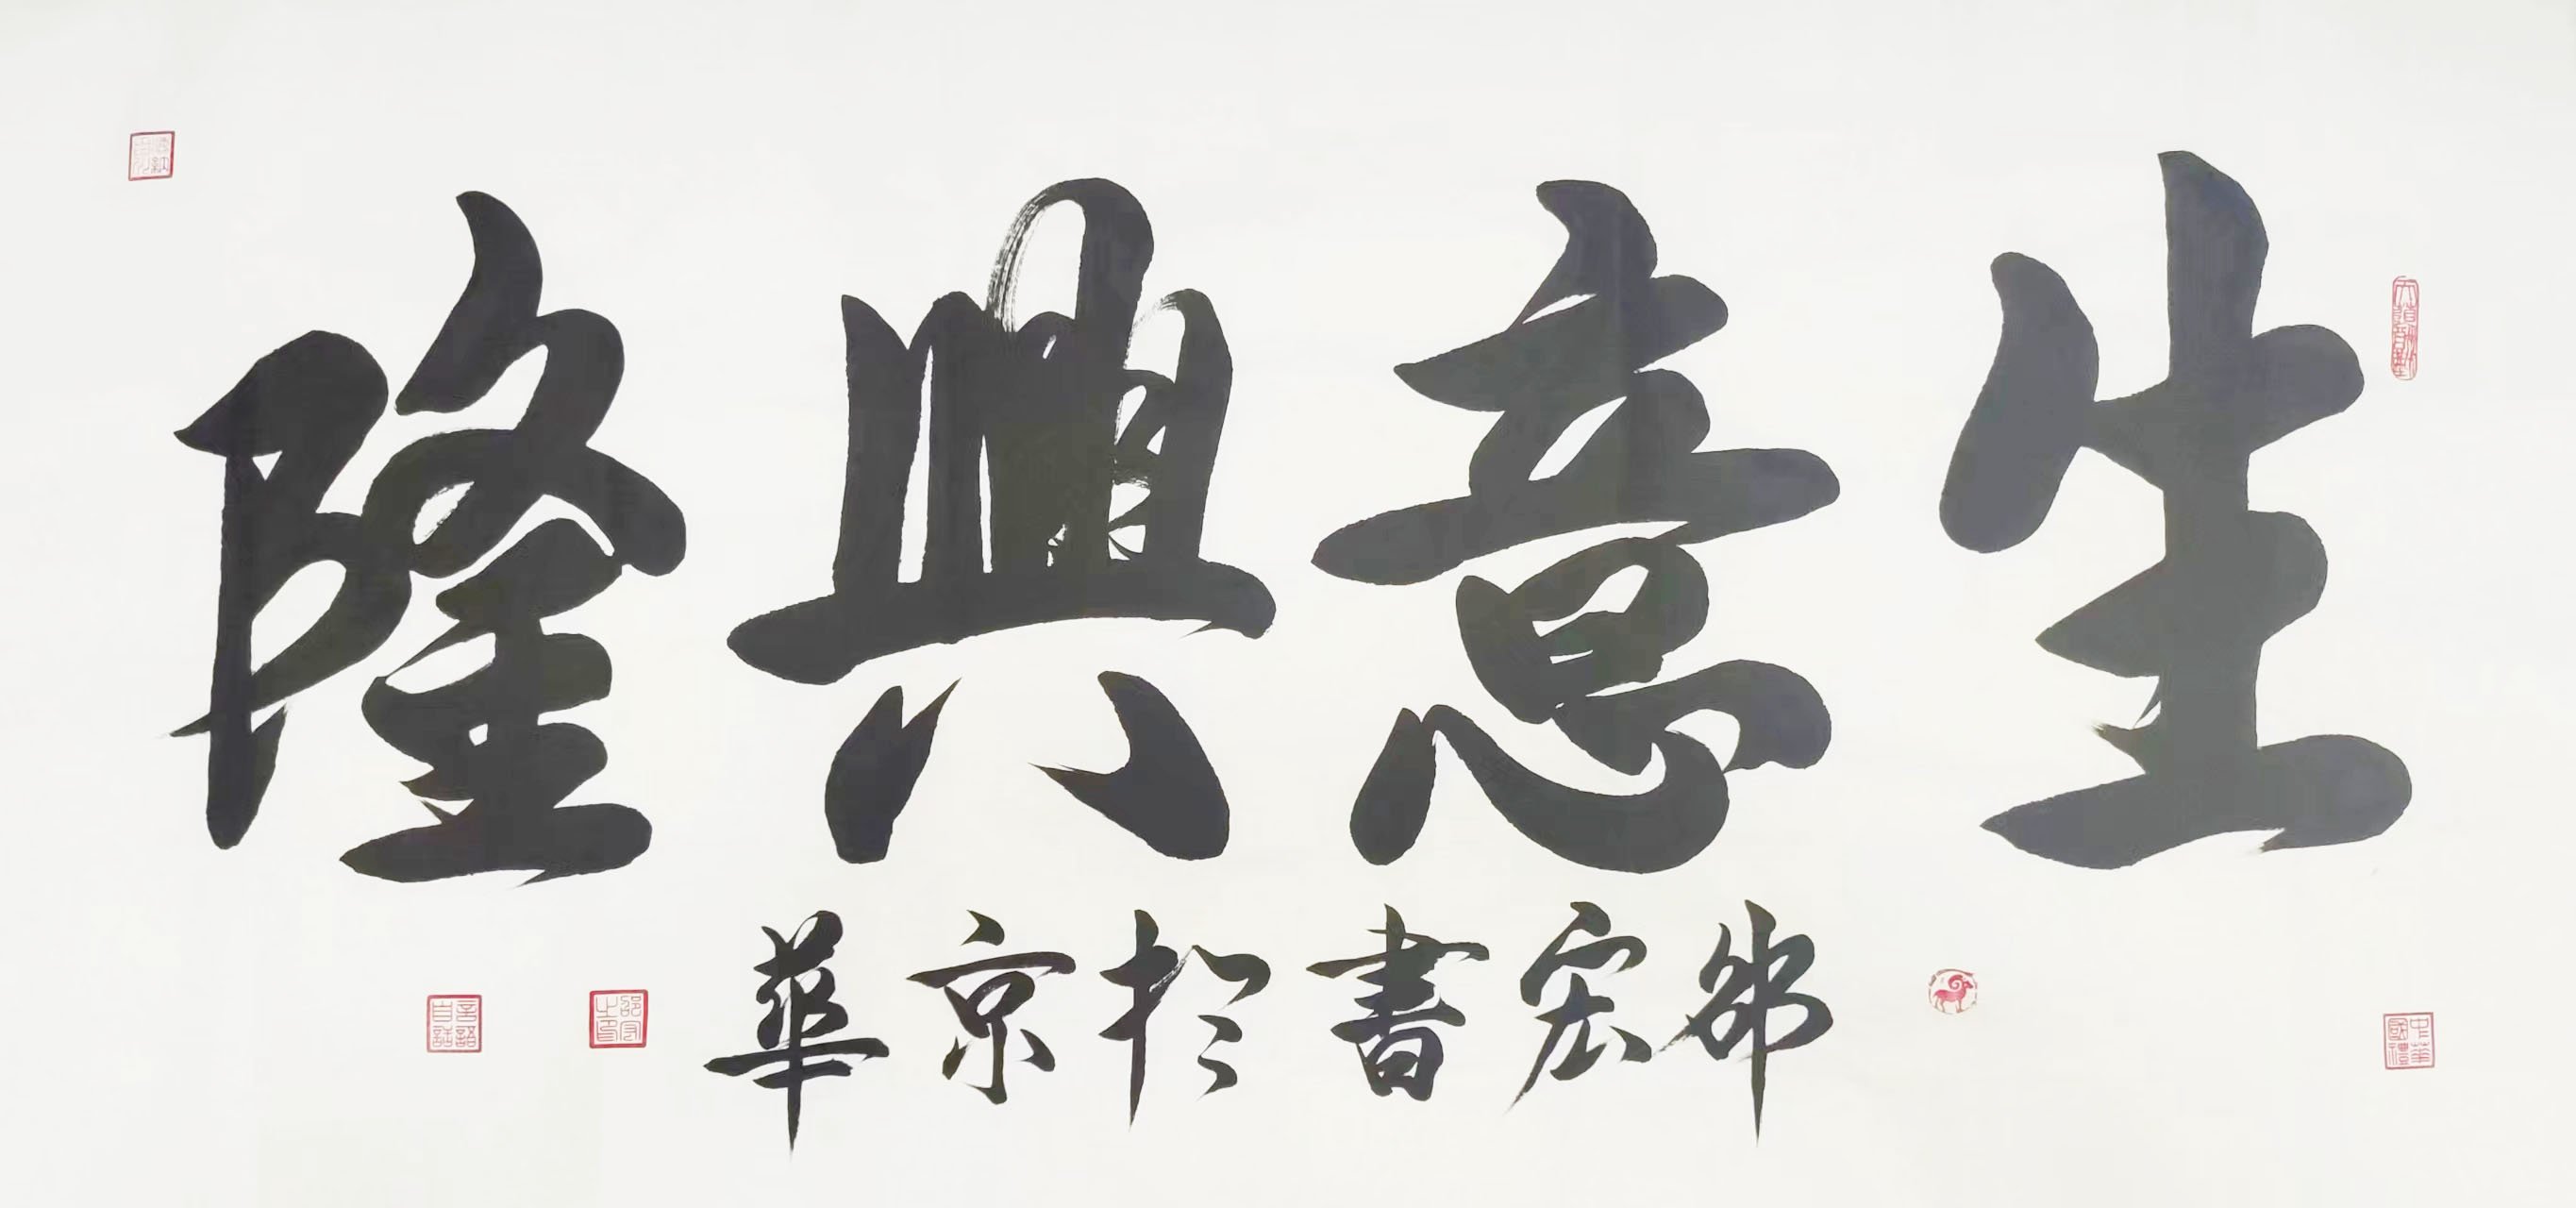 生意興隆
邵宏書於京華
中華國禮